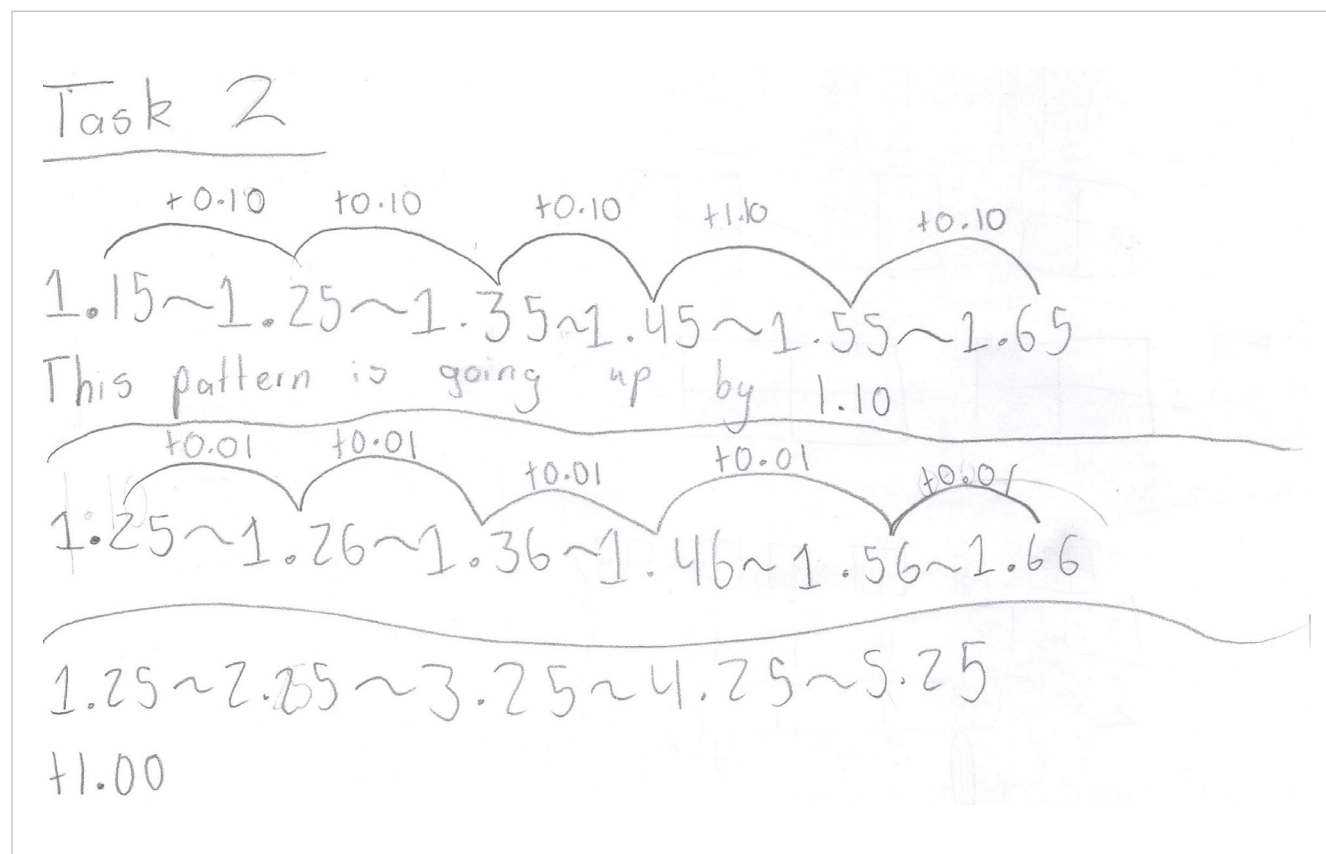 Task 2
+0.10 +0.10 +0.10 +1.10 +0.10
1.15~1.25~1.35~1.45~1.55~1.65
This pattern is going up by 1.10
+0.01 +0.01 +0.01 +0.01 +0.01
1.25~1.26~1.36~1.46~1.56~1.66
1.25~2.25~3.25~4.25~5.25
+1.00